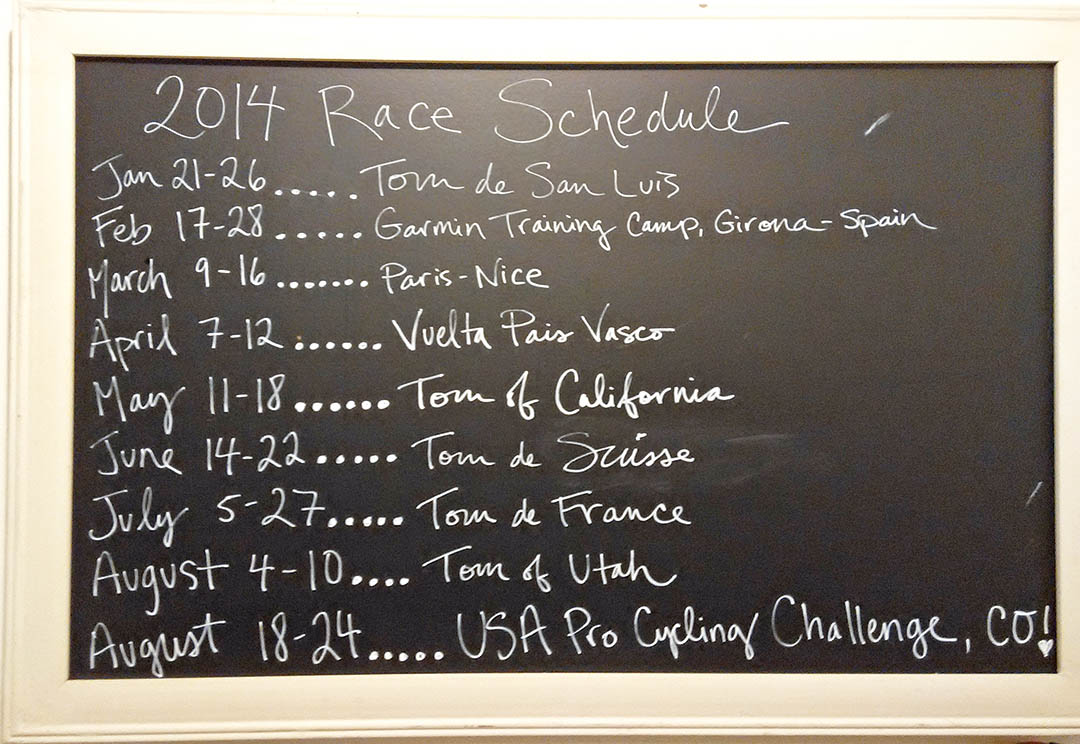 2014 Race Schedule
Jan 21-26..... Tour de San Luis
Feb 17-28..... Garmin Training Camp, Girona-Spain
March 9-16....... Paris-Nice
April 7-12...... Vuelta Pais Vasco
May 11-18...... Tour of California
June 14-22..... Tour de Suisse
July 5-27..... Tour de France
August 4-10.... Tour of Utah
August 18-24..... USA Pro Cycling Challenge, CO!